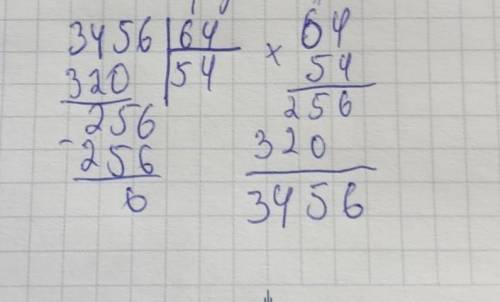 3456 | 64
320 | 54
256
- 256
0
× 64
54
256
320
3456